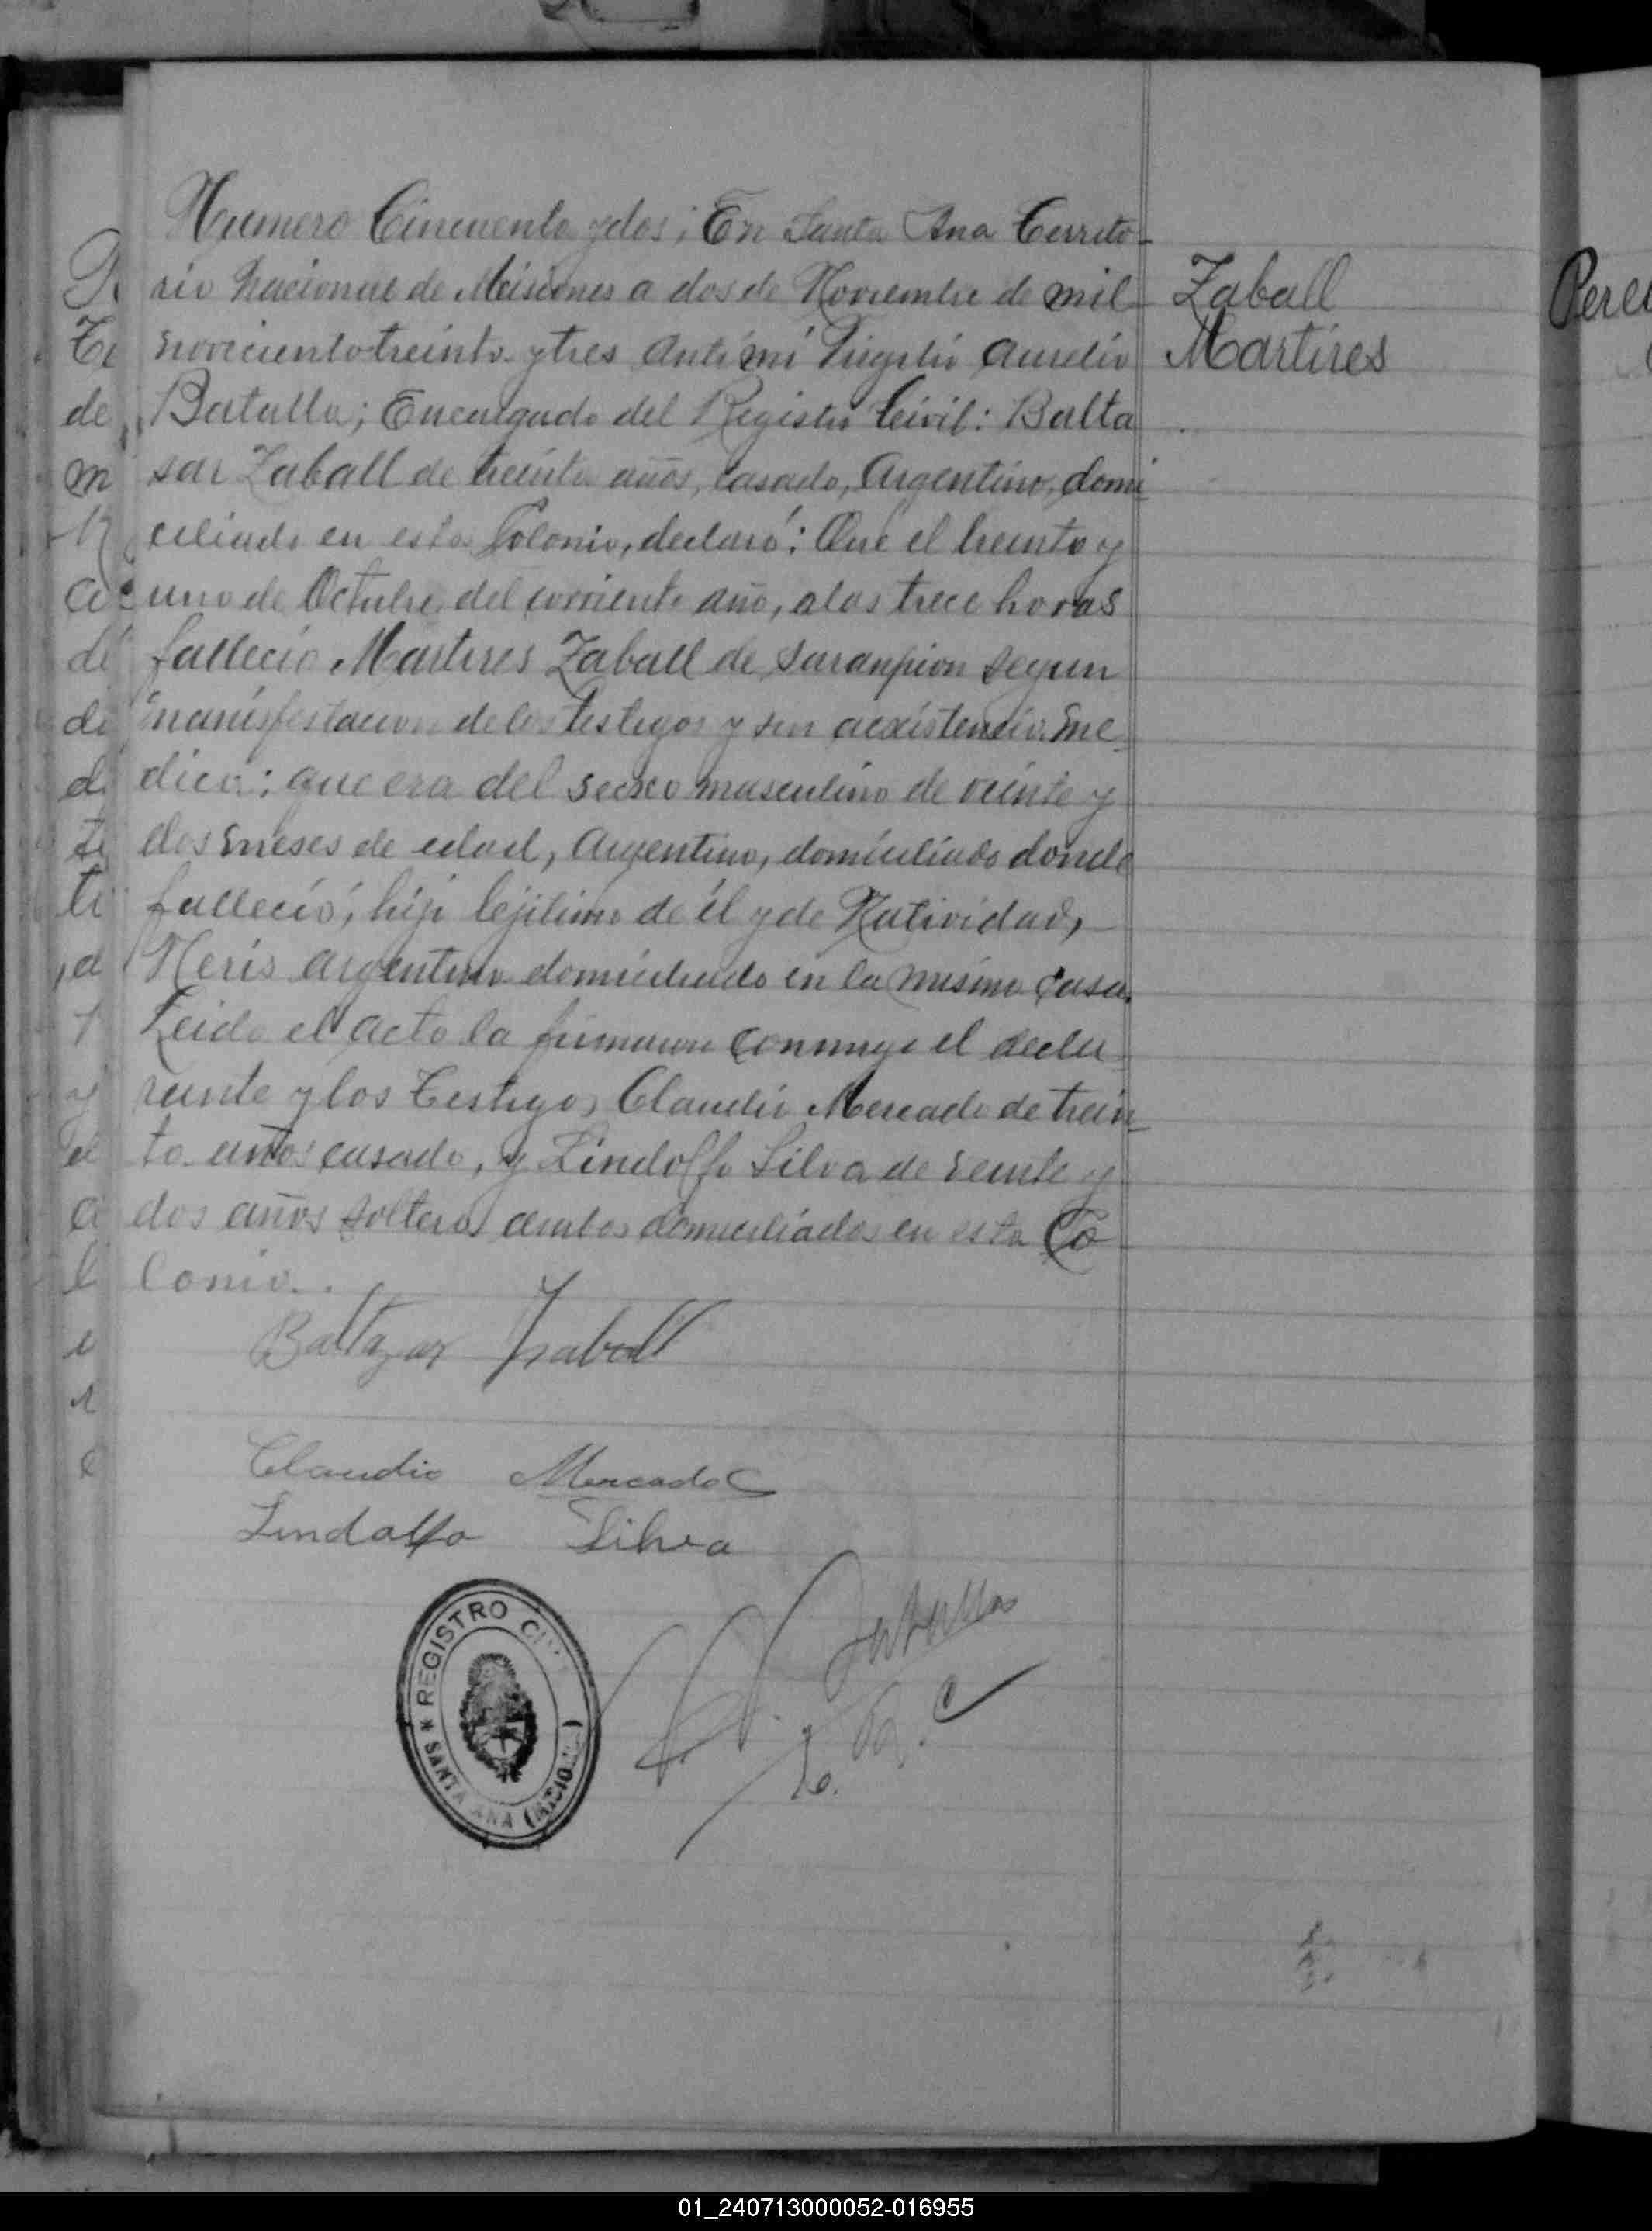 Numero Cincuenta y dos; En Santa Ana Territo-
rio Nacional de Misiones a dos de Noviembre de mil
noveciento treinta y tres Anti mi Virgilio Aurelio
Batalla; Encargado del Registro Civil: Balta
sar Zaball de treinta años, casado, Argentino, domi
ciliado en esta Colonia, declaró: Que el treinta y
uno de Octubre del corriente año, a las trece horas
fallecio Martires Zaball de saranpion segun
manisfestacion de los testigos y sin acxistencia me-
dica: que era del secxo masculino de veinte y
dos meses de edad, Argentino, domiciliado donde
falleció, hijo lejitimo de él y de Natividad,
Neris argentina domiciliado en la misma casa.
Leida el acto la firmaron conmigo el decla-
rante y los Testigos Claudio Mercado de trein-
ta años casado, y Lindolfo Silva de veinte y
dos años soltero ambos domiciliados en esta Co-
lonia.
Zaball
Martires
Baltazar Zaball
Claudio Mercado
Lindolfo Silva
REGISTRO CIVIL
* SANTA ANA (MISIONES)
Pere
01_240713000052-016955